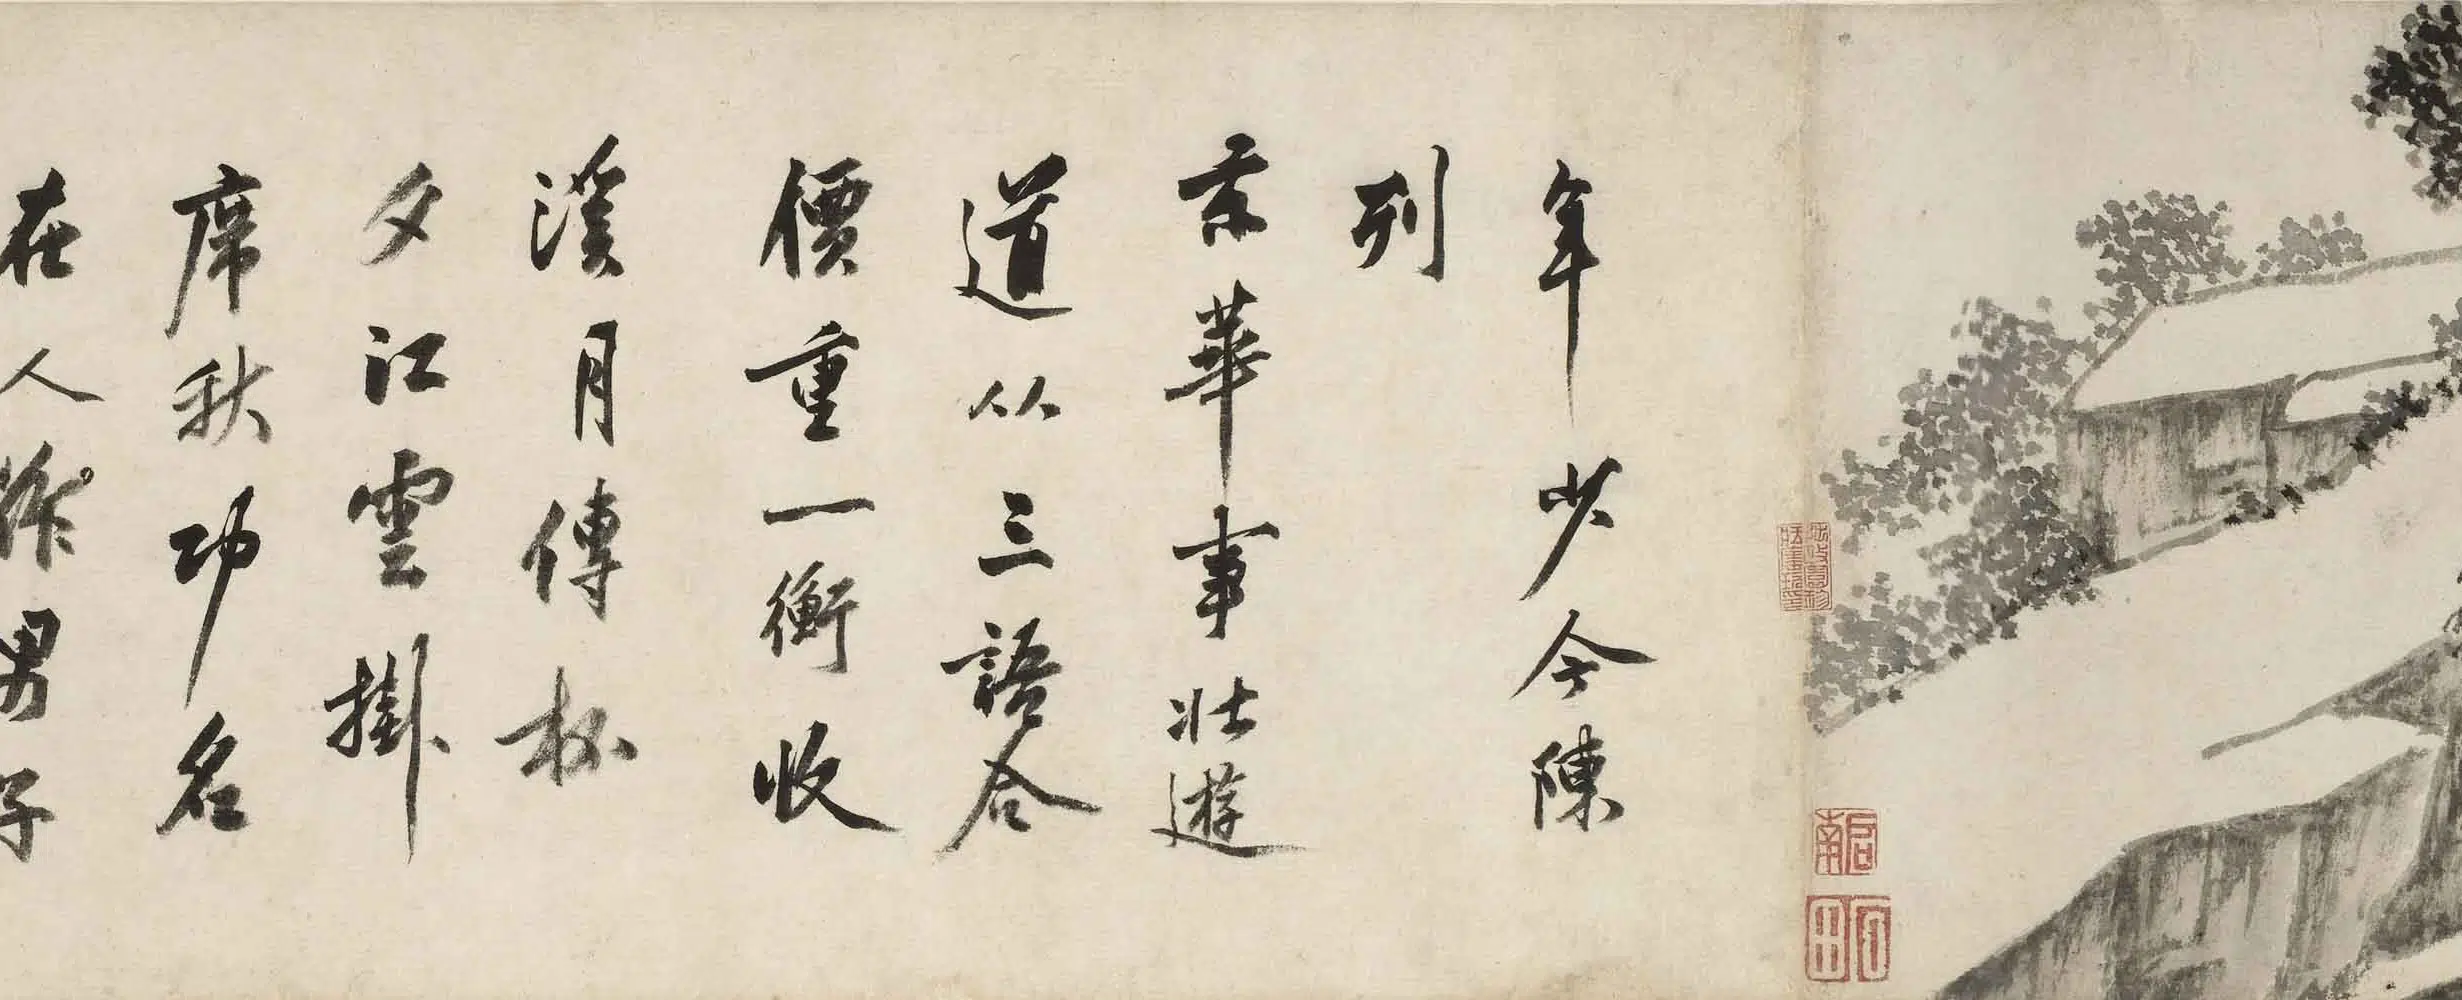 年少今陳
列
京華事壯遊
道從三語合
價重一衡收
溪月傳杯
夕江雲掛
席秋功名
在人作男子
啓南
石田